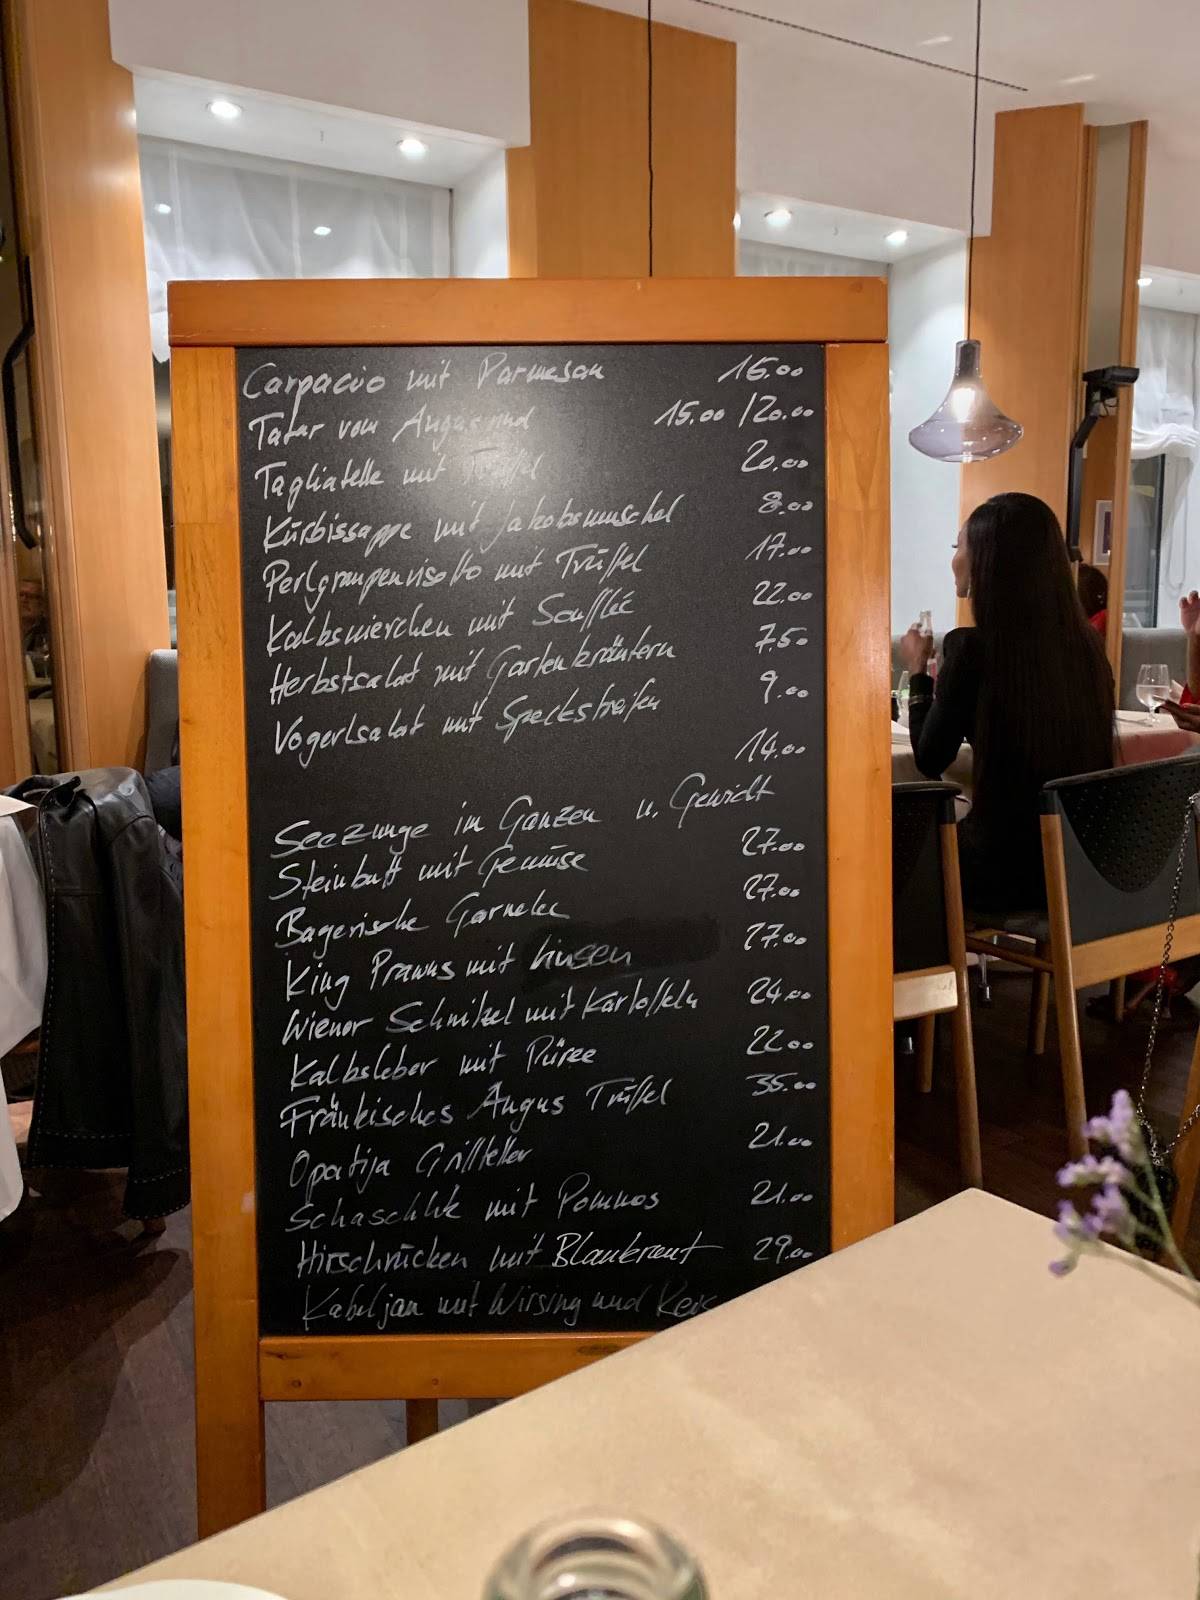 Carpacio mit Parmesan 16.00
Tatar vom Angusrind 15.00 / 20.00
Tagliatelle mit Trüffel 20.00
Kürbissuppe mit Jakobsmuschel 8.00
Perlgraupenrisotto mit Trüffel 17.00
Kalbsnierchen mit Soufflée 22.00
Herbstsalat mit Gartenkräutern 7.50
Vogerlsalat mit Speckstreifen 9.00
14.00
Seezunge im Ganzen n. Gewicht
Steinbutt mit Gemüse 27.00
Bayerische Garnelen 27.00
King Prawns mit Linsen 27.00
Wiener Schnitzel mit Kartoffeln 24.00
Kalbsleber mit Püree 22.00
Fränkisches Angus Trüffel 35.00
Opatija Grillteller 21.00
Schaschlik mit Pommes 21.00
Hirschrücken mit Blaukraut 29.00
Kabeljau mit Wirsing und Reis